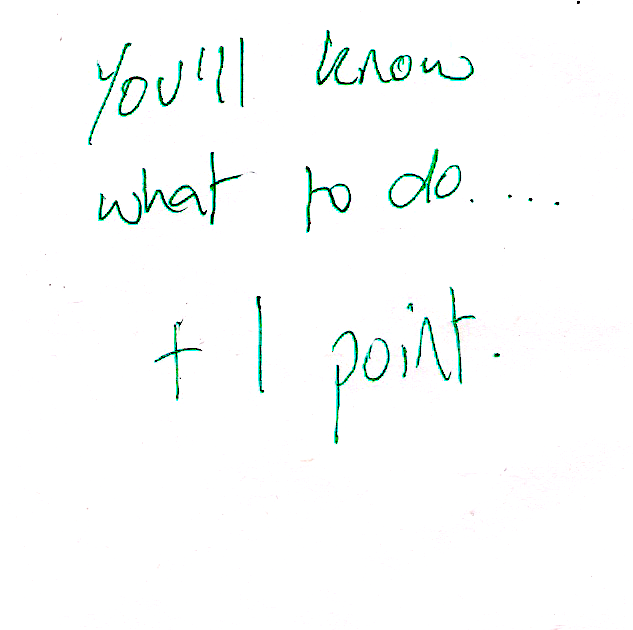 You'll know
what to do.....
+ 1 point.